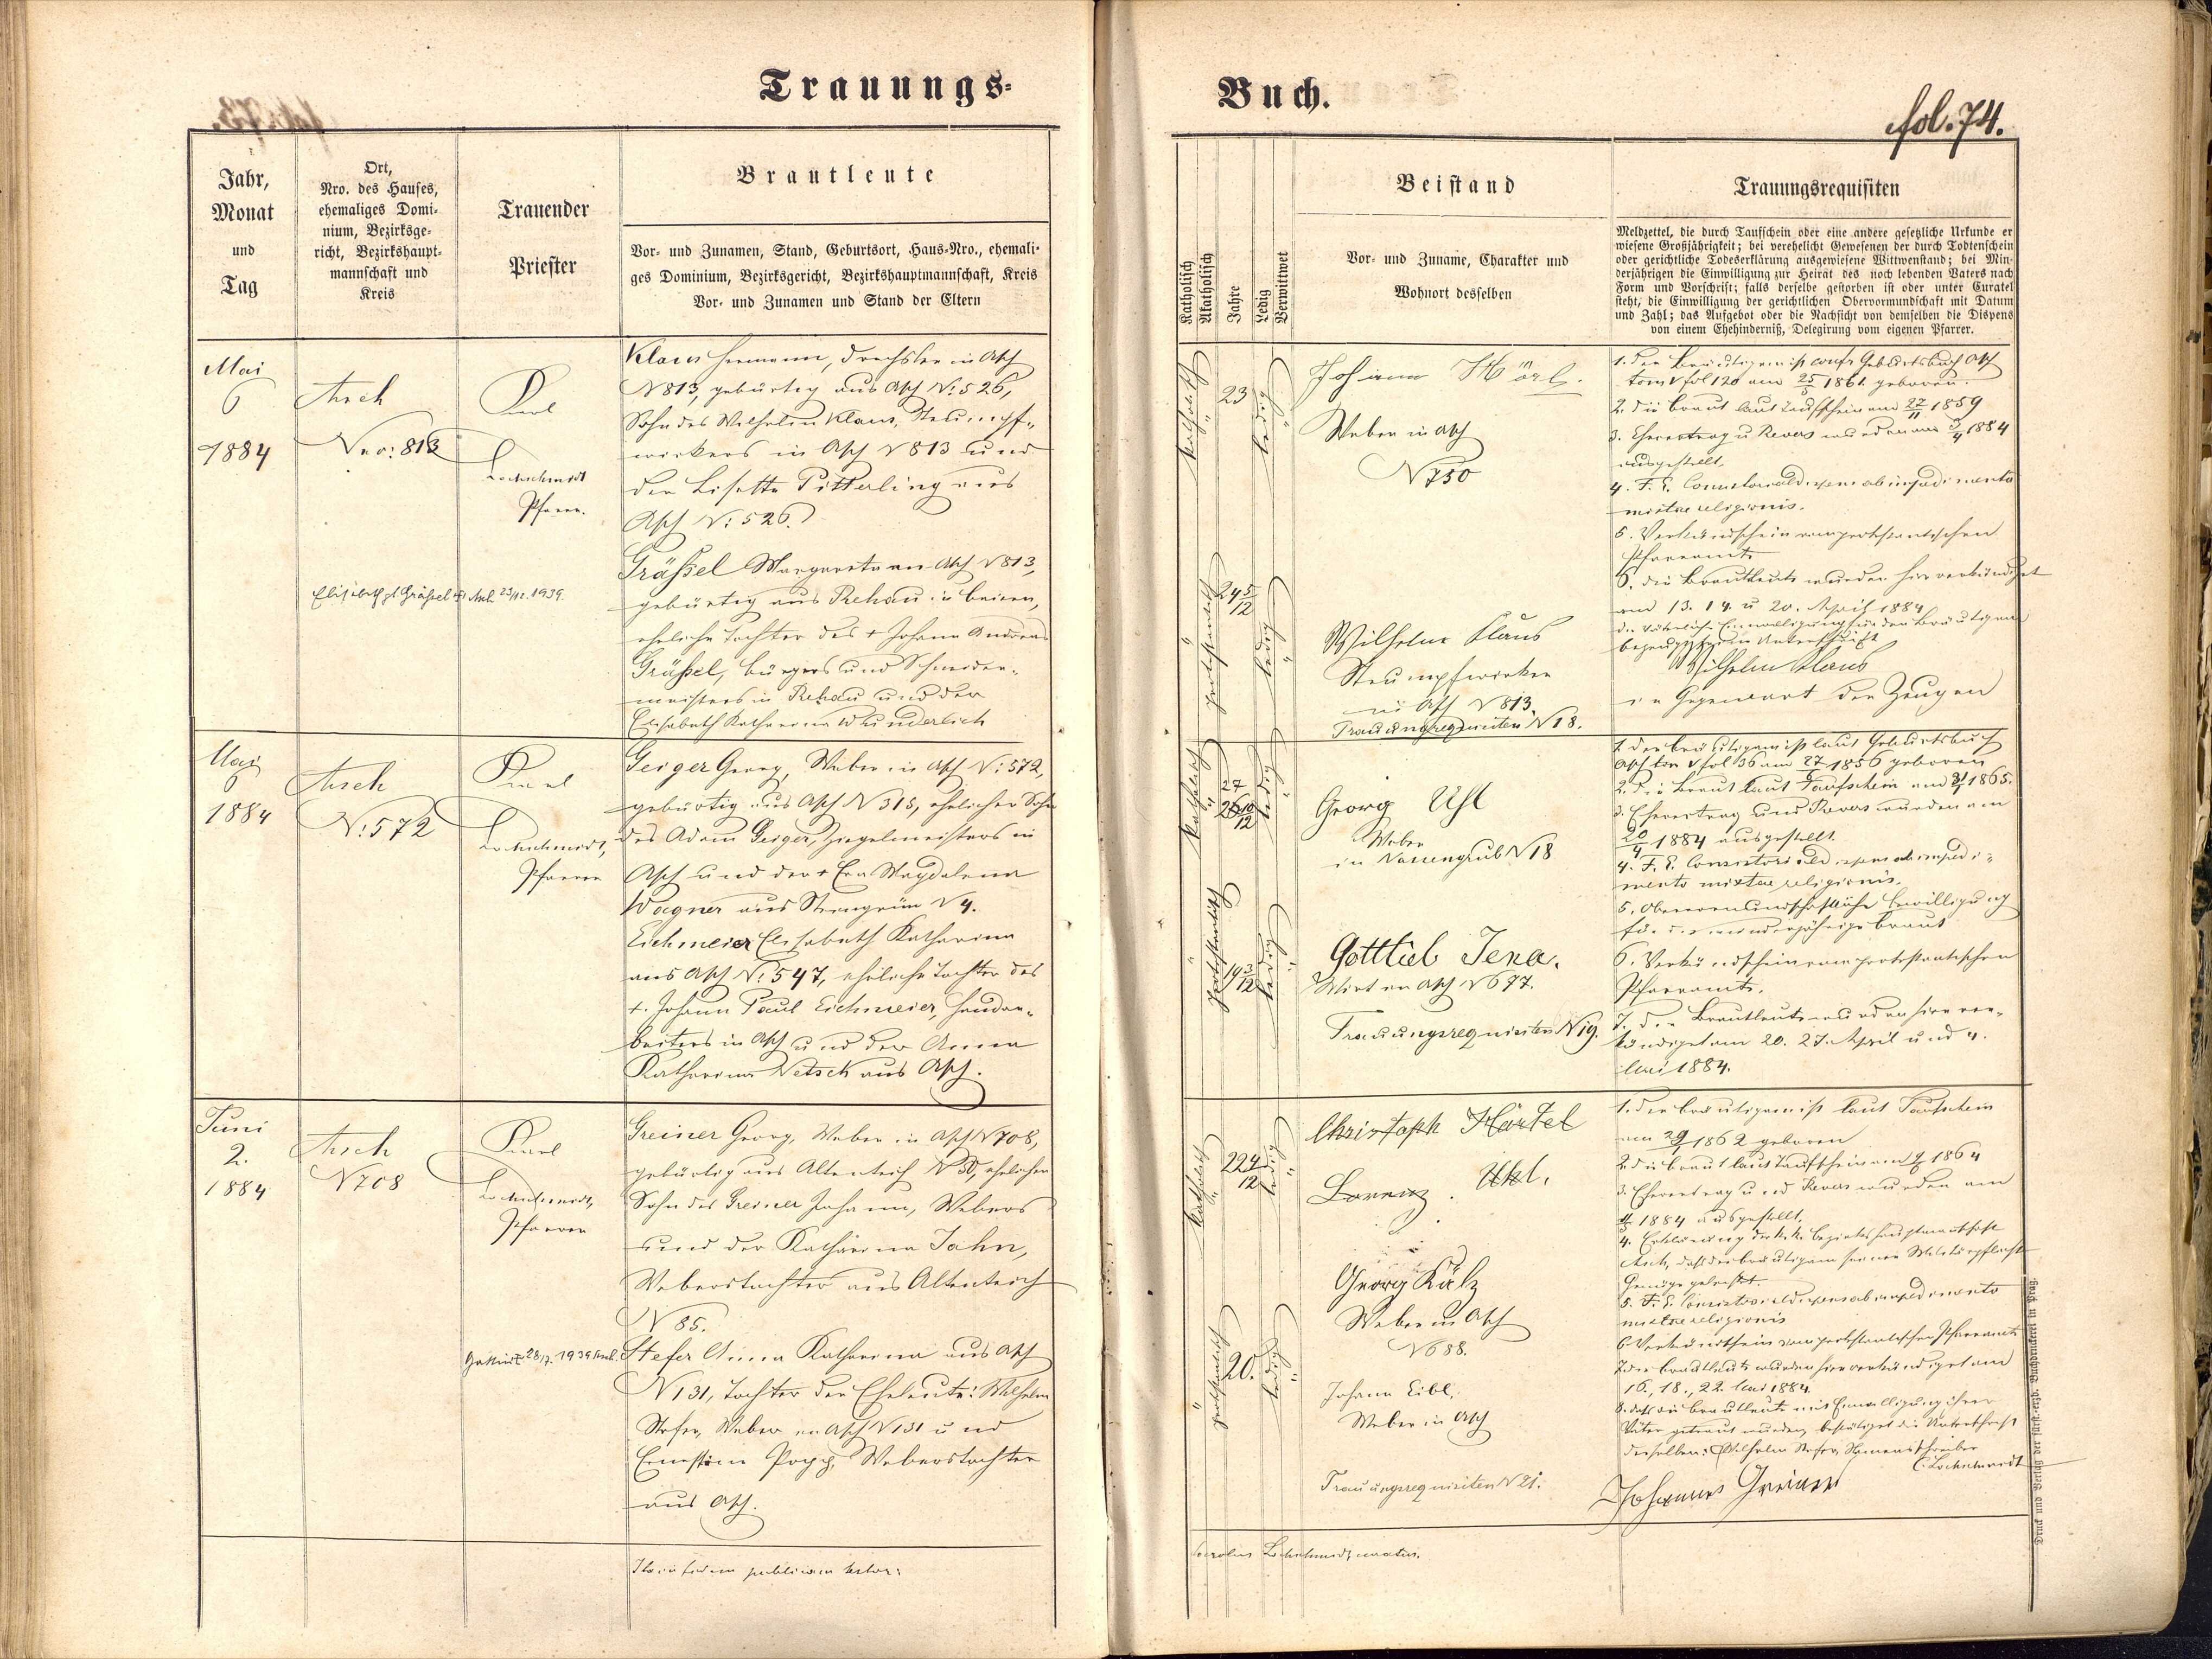 Trauungs-
Jahr,
Monat
und
Tag
Ort,
Nro. des Hauses,
ehemaliges Domi-
nium, Bezirksge-
richt, Bezirkshaupt-
mannschaft und
Kreis
Trauender
Priester
Brautleute
Vor- und Zunamen, Stand, Geburtsort, Haus-Nro., ehemali-
ges Dominium, Bezirksgericht, Bezirkshauptmannschaft, Kreis
Vor- und Zunamen und Stand der Eltern
Mai
6
1884
Asch
Nro: 813
Karl
Lochschmidt
Pfarrer.
Klaus Hermann, Drechsler in Asch
N 813, gebürtig aus Asch N: 526,
Sohn des Wilhelm Klaus, Strumpf-
wirkers in Asch N 813 und
der Lisette Pitterling aus
Asch N: 526.
Gräßel Margareta in Asch N 813,
gebürtig aus Rehau in Baiern,
eheliche Tochter des + Johann Andreas
Gräßel, Bürgers und Schneider-
meisters in Rehau und der
Elisabeth Katharina Wunderlich
Elisabeth Gräßel Asch 23/12. 1939.
Mai
6
1884
Asch
N: 572
Karl
Lochschmidt,
Pfarrer
Geiger Georg, Weber in Asch N: 572,
gebürtig aus Asch N 315, ehelicher Sohn
des Adam Geiger, Ziegelmeisters in
Asch und der + Eva Magdalena
Wagner aus Steingrün N 4.
Eichmeier Elisabeth Katharina
aus Asch N: 547, eheliche Tochter des
+ Johann Paul Eichmeier, Handar-
beiters in Asch und der Anna
Katharina Netsch aus Asch.
Juni
2.
1884
Asch
N 708
Karl
Lochschmidt,
Pfarrer
Greiner Georg, Weber in Asch N 708,
gebürtig aus Altenteich N 50, ehelicher
Sohn des Greiner Johann, Webers
und der Katharina Jahn,
Weberstochter aus Altenteich
N 85.
28/7. 1939
Stefer Anna Katharina aus Asch
N 131, Tochter der Eheleute: Wilhelm
Stefer, Weber in Asch N 131 und
Ernestine Popp, Weberstochter
aus Asch.
Buch.
fol. 74.
Katholisch
Akatholisch
Jahre
Ledig
Verwittwet
Beistand
Vor- und Zuname, Charakter und
Wohnort desselben
Trauungsrequisiten
Meldzettel, die durch Taufschein oder eine andere gesetzliche Urkunde er
wiesene Großjährigkeit; bei verehelicht Gewesenen der durch Todtenschein
oder gerichtliche Todeserklärung ausgewiesene Wittwenstand; bei Min-
derjährigen die Einwilligung zur Heirat des noch lebenden Vaters nach
Form und Vorschrift; falls derselbe gestorben ist oder unter Curatel
steht, die Einwilligung der gerichtlichen Obervormundschaft mit Datum
und Zahl; das Aufgebot oder die Nachsicht von demselben die Dispens
von einem Ehehinderniß, Delegirung vom eigenen Pfarrer.
katholisch
23
ledig
protestantisch
24 5/12
ledig
Johann
Weber in Asch
N 750
Wilhelm Klaus
Strumpfwirker
in Asch N 813.
Trauungsrequisiten N 18.
1. Der Bräutigam ist Geburtsbuch Asch
tom V fol 120 am 25/5 1861. geboren.
2. Die Braut laut Taufschein am 27/11 1859
3. Ehevertrag u Revers wurden am 3/4 1884
ausgestellt.
4. F. E. Consistorialdispens ab impedimento
mixtae religionis.
5. Verkündschein vom protestantischen
Pfarramte
6. Die Brautleute wurden hier verkündigt
am 13. 14. u 20. April 1884
die väterliche Einwilligung für den Bräutigam
Wilhelm Klaus
in Gegenwart der Zeugen
katholisch
27
ledig
protestantisch
19 3/12
ledig
Georg Uhl
Weber
in Nassengrub N 18
Gottlieb Jena.
Wirt in Asch N 697.
Trauungsrequisiten N 19.
1. Der Bräutigam ist laut Geburtsbuch
Asch tom V fol 36 am 27/6 1856 geboren
2. Die Braut laut Taufschein am 31/1 1865.
3. Ehevertrag und Revers wurden am
20/4 1884 ausgestellt
4. F. E. Consistorialdispens ab impedi-
mento mixtae religionis.
5. Obervormundschaftliche Bewilligung
für die minderjährige Braut
6. Verkündschein vom protestantischen
Pfarramte.
7. Die Brautleute wurden hier ver-
kündiget am 20. 27. April und 4.
Mai 1884.
katholisch
22 4/12
ledig
protestantisch
20.
ledig
Christoph Härtel
Lorenz Uhl.
Georg Kälz
Weber in Asch
N 688.
Johann Eibl,
Weber in Asch
Trauungsrequisiten N 21.
1. Der Bräutigam ist laut Taufschein
am 29/1 1862 geboren
2. die Braut laut Taufschein am 1864
3. Ehevertrag und Revers wurden am
1884 ausgestellt.
4. Erklärung der k. k. Bezirkshauptmannschaft
Asch, daß der Bräutigam seiner Militärpflicht
Genüge geleistet.
5. F. E. Consistorialdispens ab impedimento
mixtae religionis
6. Verkündschein vom protestantischen Pfarramte
7. die Brautleute wurden hier verkündiget am
16., 18., 22. Mai 1884.
8. daß die Brautleute mit Einwilligung ihrer
Väter getraut wurden, bestätiget die Unterschrift
derselben: Wilhelm Stefer, Namensschreiber
C. Lochschmidt
Johannes Greiner
Carolus Lochschmidt, curatus.
Druck und Verlag der fürst.-erzb. Buchdruckerei in Prag.